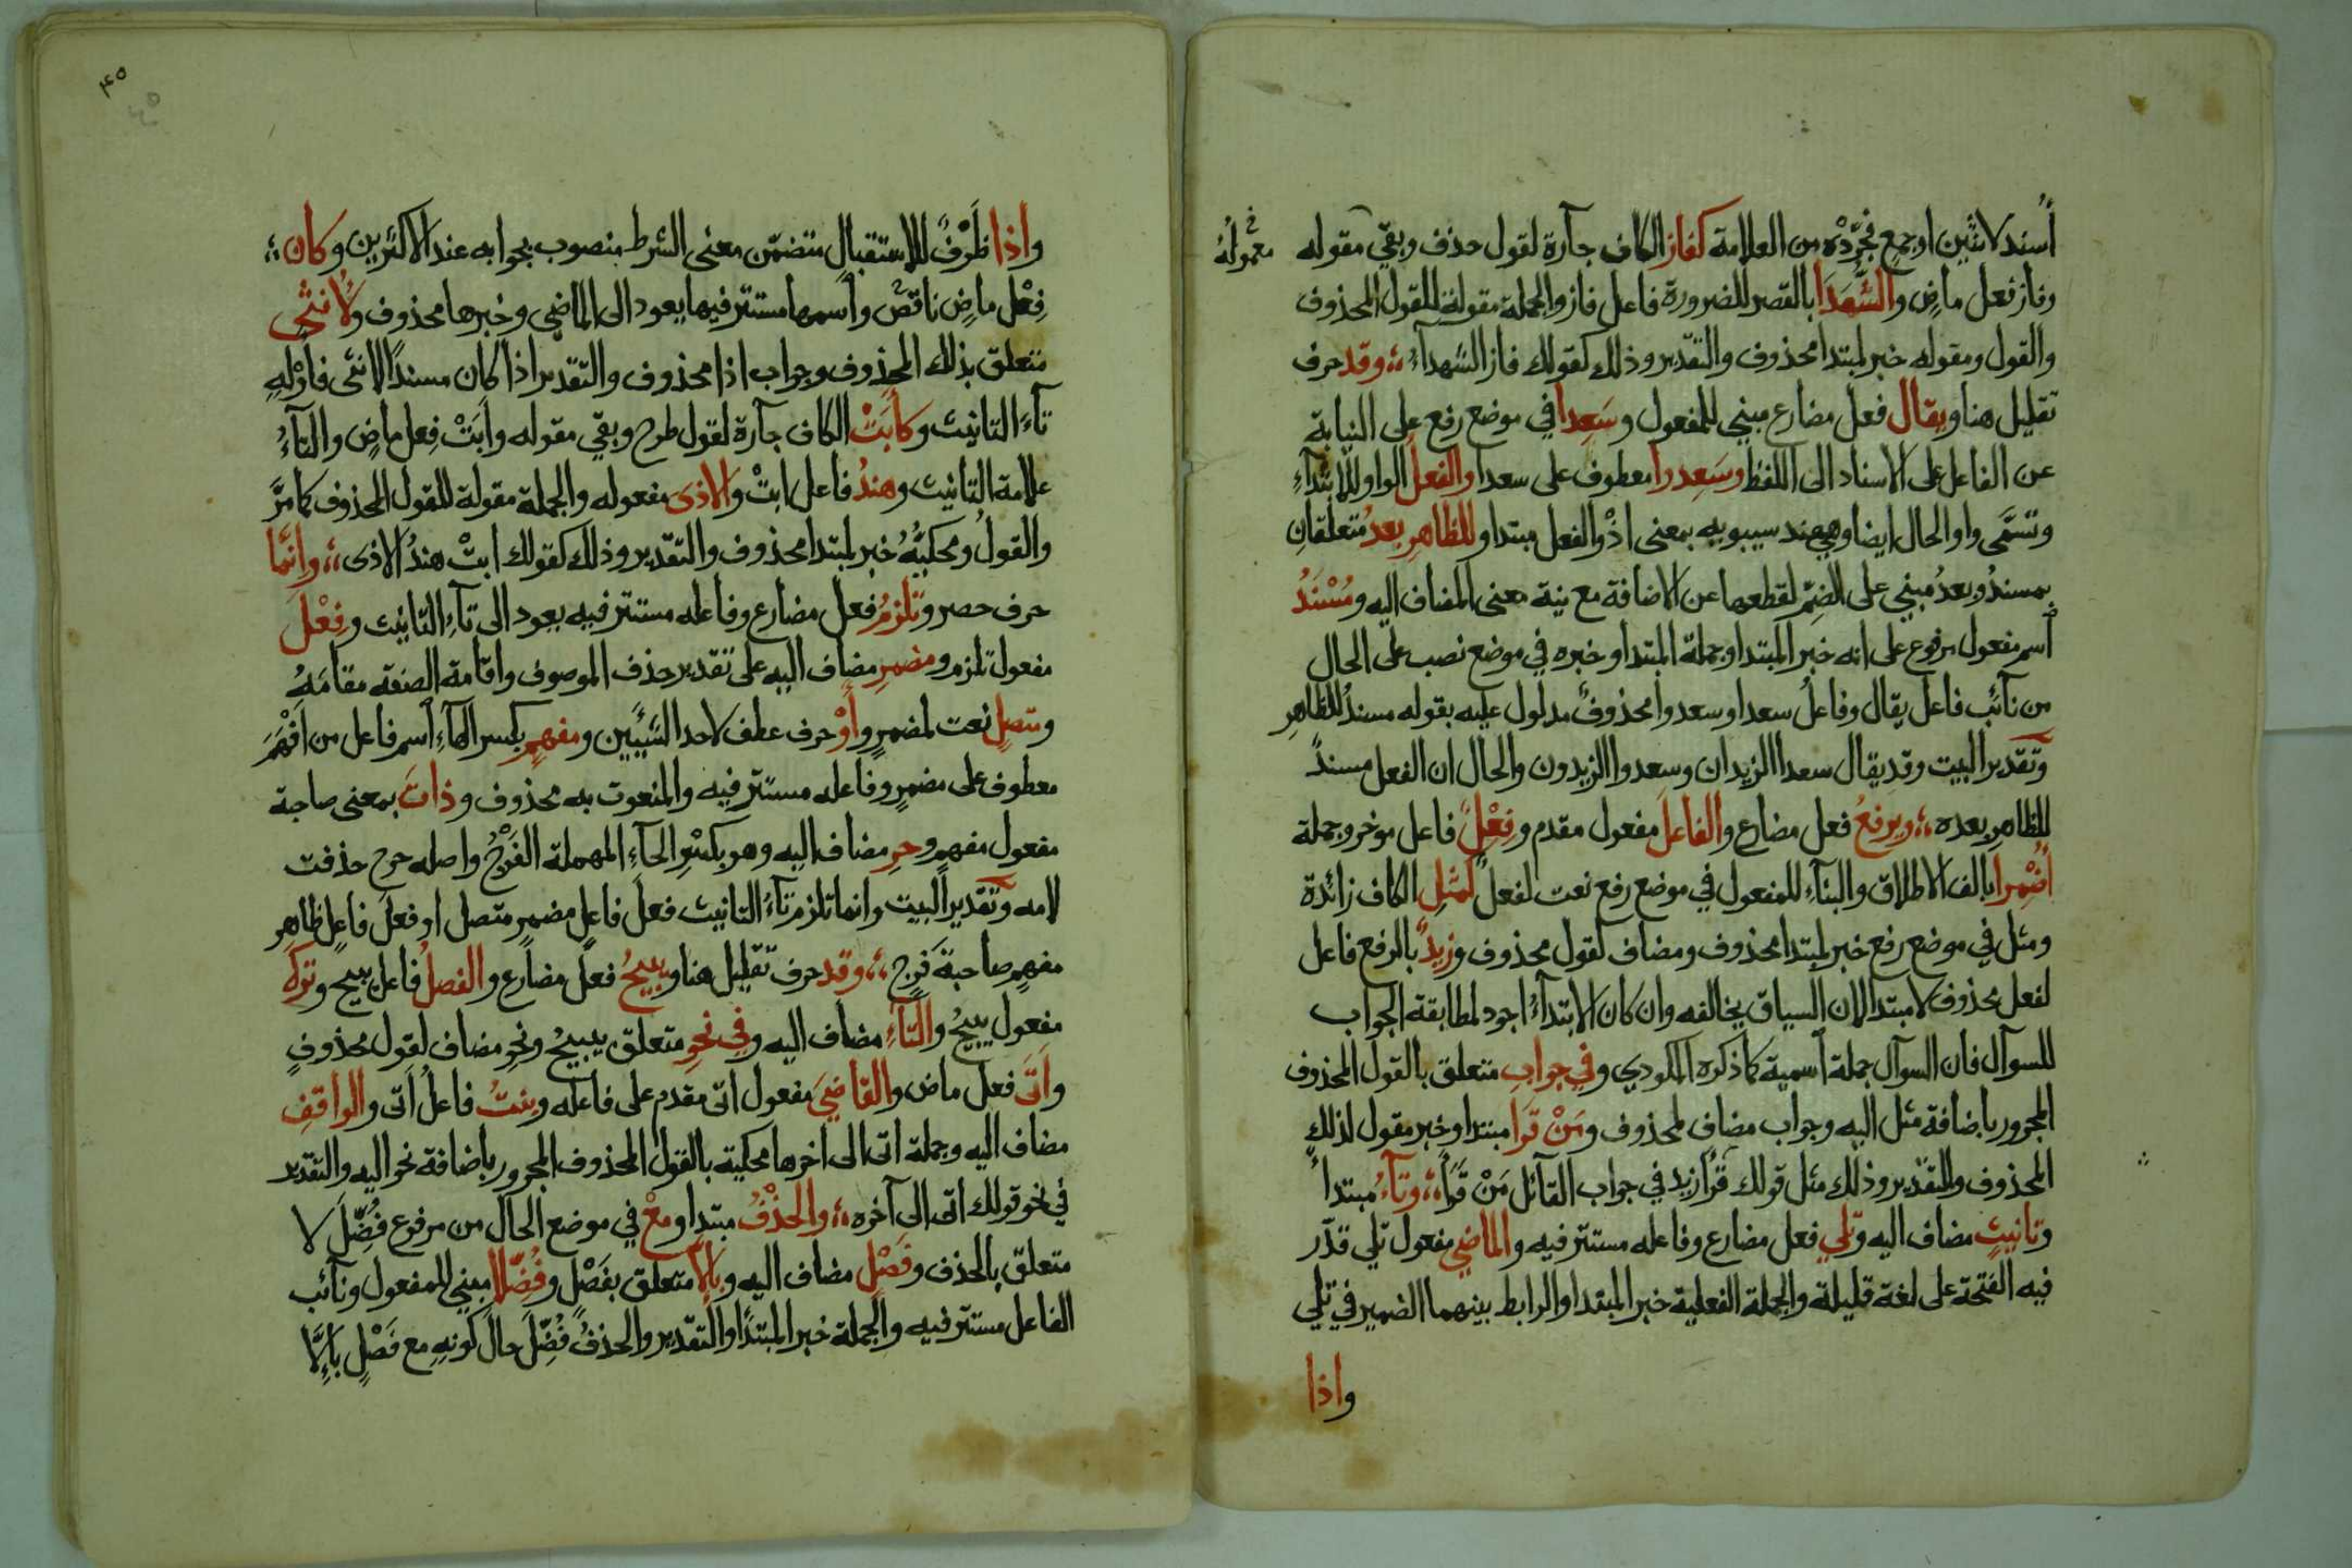 أسند لاثنين او جمع فجرّده من العلامة كفاز الكاف جآرة لقول حذف وبقي مقوله
معموله خ
وفاز فعل ماضٍ والشُّهَدَا بالقصر للضرورة فاعل فاز والجملة مقولة للقول المحذوف
والقول ومقوله خبر لمبتدا محذوف والتقدير وذلك كقولك فاز الشهدآء ؛؛ وقد حرف
تقليل هنا ويقال فعل مضارع مبني للمفعول وسَعِدا في موضع رفع على النيابة
عن الفاعل على الاسناد الى اللفظ وسَعِدوا معطوف على سعدا والفعل الواو للابتدآءِ
وتسَمَّى واو الحال ايضا وهي عند سيبويه بمعنى اذْ والفعل مبتدا وللظاهرِ بعدُ متعلقانِ
بمسندُ وبعدُ مبني على الضمّ لقطعها عن الاضافة مع نية معنى المضاف اليه ومُسْنَدُ
أسم مفعول مرفوع على انه خبر المبتدا وجملة المبتدا وخبره في موضع نصب على الحال
من نآئب فاعل يقال وفاعلُ سعدا وسعدوا محذوفٌ مدلول عليه بقوله مسندُ للظاهرِ
وتقدير البيت وقد يقال سعدا الزيدان وسعدوا الزيدون والحال ان الفعل مسندٌ
للظاهرِ بعده ؛؛ ويرفعُ فعل مضارع والفاعلَ مفعول مقدم وفِعْلُ فاعل موخر وجملة
أُضْمِرا بالف الاطلاق والبنآءِ للمفعول في موضع رفع نعت لفعلٌ كمثلِ الكاف زائدة
ومثل في موضع رفع خبر لمبتدا محذوف ومضاف لقول محذوف وزيدٌ بالرفع فاعل
لفعل محذوف لا مبتدا لان السياق يخالفه وان كان الابتدآءُ اجود لمطابقة الجواب
للسوآل فان السوآل جملة أسمية كما ذكره المكودي وفي جوابِ متعلق بالقول المحذوف
المجرور باضافة مثل اليه وجواب مضاف لمحذوف ومَنْ قَرا مبتدا وخبر مقول لذلك
المحذوف والتقدير وذلك مثل قولك قَرَا زيد في جواب القآئل مَنْ قَرَا ؛؛ وتآءُ مبتدا
وتانيثٍ مضاف اليه وتلي فعل مضارع وفاعله مستتر فيه والماضيِ مفعول تلي قدّر
فيه الفتحة على لغة قليلة والجملة الفعلية خبر المبتدا والرابط بينهما الضمير في تلي
واذا
٤٥
٤٥
واذا ظرْفٌ للاستقبالِ متضمّن معنى الشرط منصوب بجوابه عند الاكثرين وكان ؛؛
فِعْل ماضٍ ناقصٌ وأسمها مستتر فيها يعود الى الماضي وخبرها محذوف ولأنثى
متعلق بذلك المحذوف وجواب اذا محذوف والتقدير اذا كان مسندًا لانثى فاوْلِهِ
تآءَ التانيث وكأَبَتْ الكاف جآرة لقول طرح وبقي مقوله وابَتْ فِعل ماضٍ والتآءُ
علامة التانيث وهندُ فاعل ابتْ والاذى مفعوله والجملة مقولة للقول المحذوف كما مرَّ
والقولُ ومحكيُّهُ خبر لمبتدا محذوف والتقدير وذلك كقولك ابتْ هندُ الاذى ؛؛ وانَّما
حرف حصر وتلزمُ فعل مضارع وفاعله مستتر فيه يعود الى تآءِ التانيث وفِعْلَ
مفعول تلزم ومضمرٍ مضاف اليه على تقدير حذف الموصوف واقامة الصفة مقامَهُ
ومتصلٍ نعت لمضمرٍ وأوْ حرف عطف لاحد الشيئين ومفهمٍ بكسر الهآءِ أسم فاعل من افْهَمَ
معطوف على مضمرٍ وفاعله مستتر فيه والمنعوت به محذوف وذاتَ بمعنى صاحبة
مفعول مفهمٍ وحرِ مضاف اليه وهو بكسْرِ الحآءِ المهملة الفَرْجُ واصله حرح حذفت
لامه وتقدير البيت وانما تلزم تآءُ التانيث فعلَ فاعلٍ مضمرٍ متصل او فعلَ فاعلٍ ظاهرٍ
مفهمٍ صاحبةَ فَرْجٍ ؛؛ وقد حرف تقليل هنا ويبيحُ فعل مضارع والفصلُ فاعل يبيح وتركَ
مفعول يبيحُ والتآءِ مضاف اليه وفي نحوِ متعلق بيبيحُ ونحوِ مضاف لقول محذوفٍ
واَتَى فعل ماض والقاضيَ مفعول اتى مقدم على فاعله وبنتُ فاعلُ اَتى والواقفِ
مضاف اليه وجملة اتى الى اخرها محكية بالقول المحذوف المجرور باضافة نحو اليه والتقدير
في نحو قولك اتى الى آخره ؛؛ والحذْفُ مبتدا ومعْ في موضع الحال من مرفوع فُضِّلَ لا
متعلق بالحذف وفَصْلٍ مضاف اليه وبالّا متعلق بفَصْلٍ وفُضِّلا مبني للمفعول ونآئب
الفاعل مستتر فيه والجملة خبر المبتدا والتقدير والحذفُ فُضِّلَ حالَ كونِهِ مع فَصْلٍ بالَّا